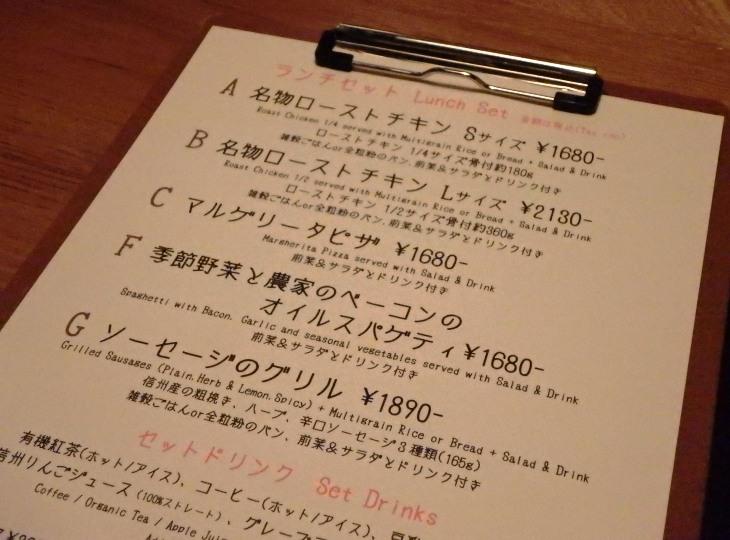 ランチセット Lunch Set 金額は税込(Tax inc)
A 名物ローストチキン Sサイズ ¥1680-
Roast Chicken 1/4 served with Multigrain Rice or Bread + Salad & Drink
ローストチキン 1/4サイズ骨付約180g
雑穀ごはんor全粒粉のパン、前菜&サラダとドリンク付き
B 名物ローストチキン Lサイズ ¥2130-
Roast Chicken 1/2 served with Multigrain Rice or Bread + Salad & Drink
ローストチキン 1/2サイズ骨付約360g
雑穀ごはんor全粒粉のパン、前菜&サラダとドリンク付き
C マルゲリータピザ ¥1680-
Margherita Pizza served with Salad & Drink
前菜&サラダとドリンク付き
F 季節野菜と農家のベーコンの
オイルスパゲティ ¥1680-
Spaghetti with Bacon, Garlic and seasonal vegetables served with Salad & Drink
前菜&サラダとドリンク付き
G ソーセージのグリル ¥1890-
Grilled Sausages (Plain,Herb & Lemon,Spicy) + Multigrain Rice or Bread + Salad & Drink
信州産の粗挽き、ハーブ、辛口ソーセージ3種類(165g)
雑穀ごはんor全粒粉のパン、前菜&サラダとドリンク付き
セットドリンク Set Drinks
有機紅茶(ホット/アイス)、コーヒー(ホット/アイス)、
信州りんごジュース(100%ストレート)、グレープ
Coffee / Organic Tea / Apple Jui